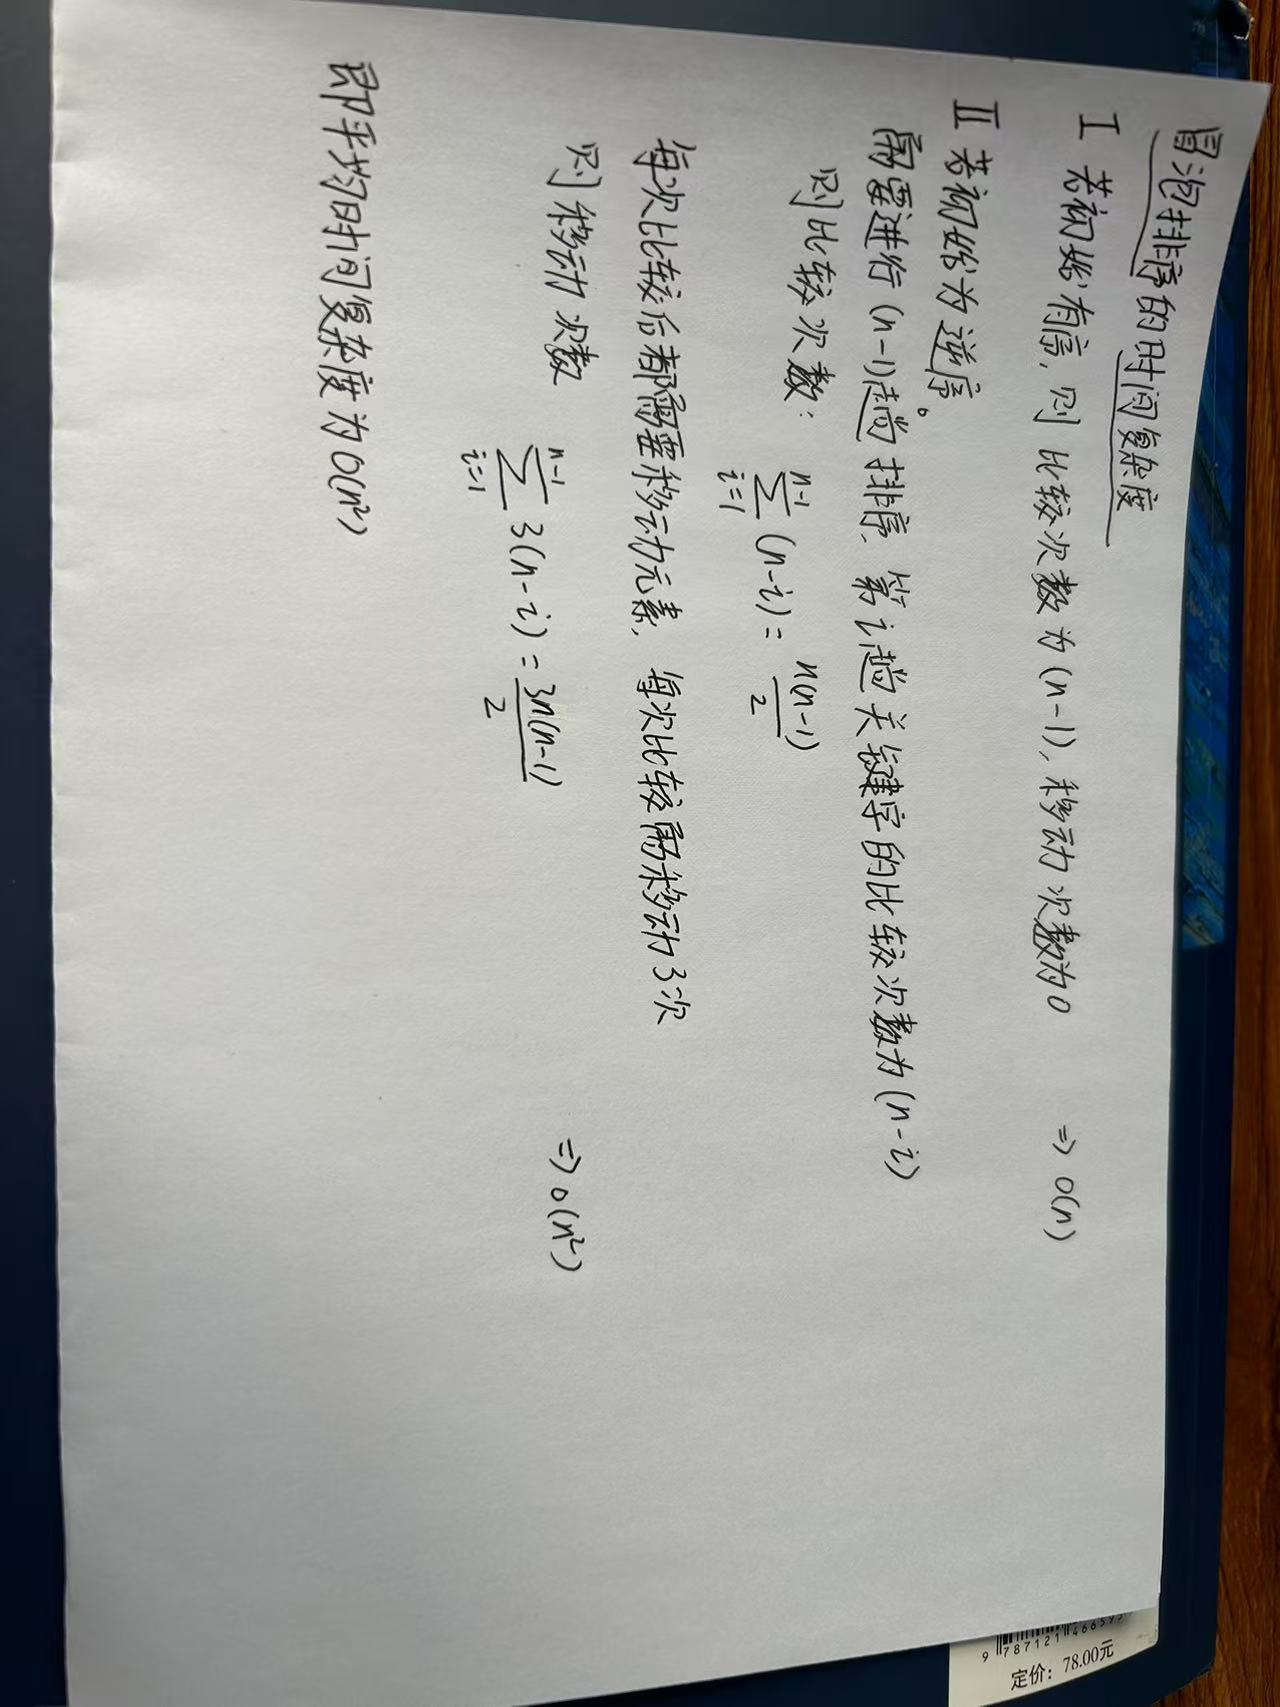 冒泡排序的时间复杂度
Ⅰ 若初始有序,则 比较次数为(n-1),移动次数为0 ⇒ O(n)
Ⅱ 若初始为逆序。
需要进行(n-1)趟排序,第i趟关键字的比较次数为(n-i)
则比较次数: \sum_{i=1}^{n-1}(n-i)=\frac{n(n-1)}{2}
每次比较后都需要移动元素,每次比较需移动3次
则移动次数 \sum_{i=1}^{n-1}3(n-i)=\frac{3n(n-1)}{2} ⇒ O(n²)
即平均时间复杂度为O(n²)
定价:78.00元